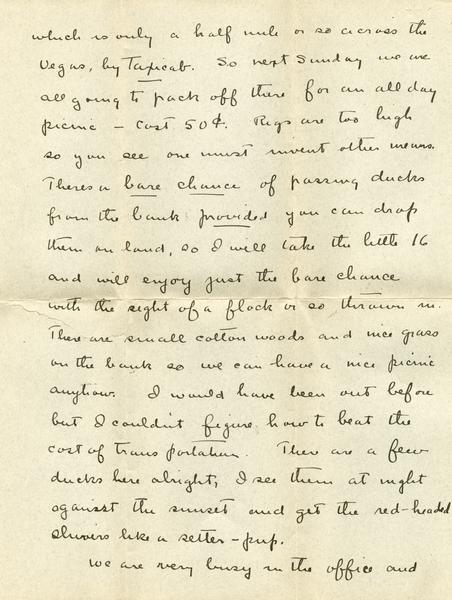 which is only a half mile or so across the
Vegas, by Taxicab. So next Sunday we are
all going to pack off there for an all day
picnic – cost 50¢. Rigs are too high
so you see one must invent other means.
Theres a bare chance of passing ducks
from the bank provided you can drop
them on land, so I will take the little 16
and will enjoy just the bare chance
with the sight of a flock or so thrown in.
There are small cotton woods and nice grass
on the bank so we can have a nice picnic
anyhow. I would have been out before
but I couldn't figure how to beat the
cost of transportation. There are a few
ducks here alright, I see them at night
against the sunset and get the red-headed
shivers like a setter-pup.
We are very busy in the office and